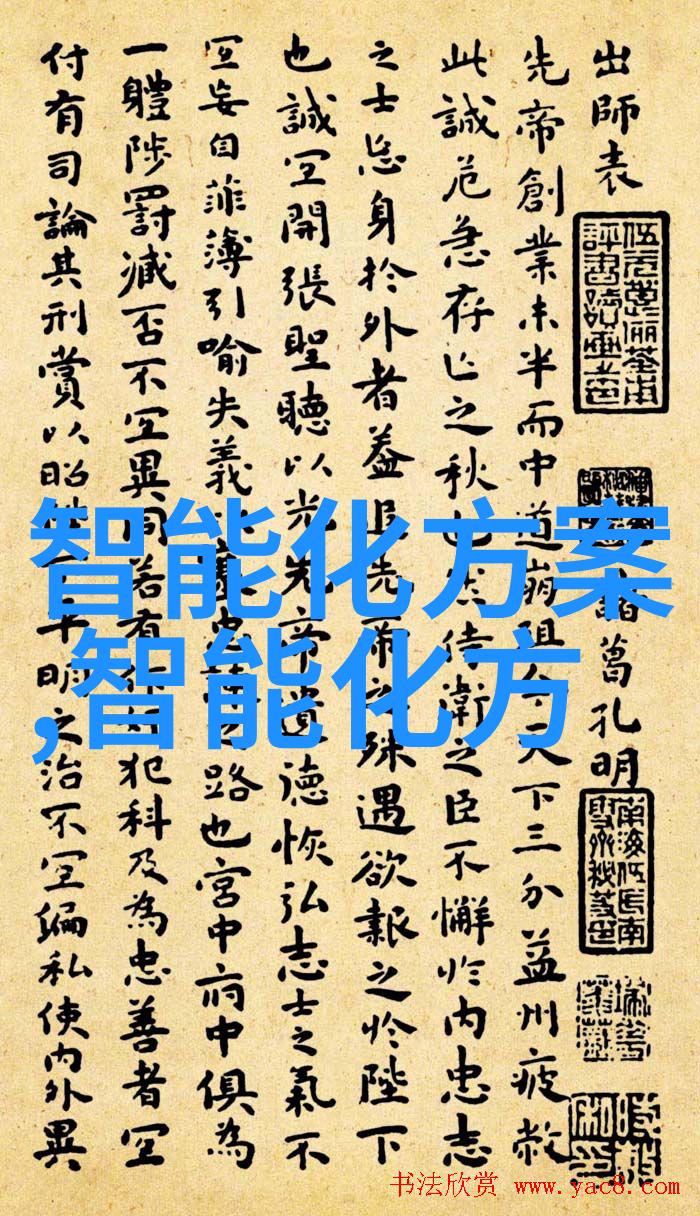 出師表
諸葛孔明
先帝創業未半而中道崩殂今天下三分益州疲敝
此誠危急存亡之秋也然侍衛之臣不懈於内忠志
之士忘身於外者蓋追先帝之殊遇欲報之於陛下
也誠宜開張聖聽以光先帝遺德恢弘志士之氣不
宜妄自菲薄引喻失義以塞忠諫之路也宮中府中俱為
一體陟罰臧否不宜異同若有作奸犯科及為忠善者宜
付有司論其刑賞以昭陛下平明之治不宜偏私使内外異
智能化方案
,智能化方
书法欣赏 www.yac8.com